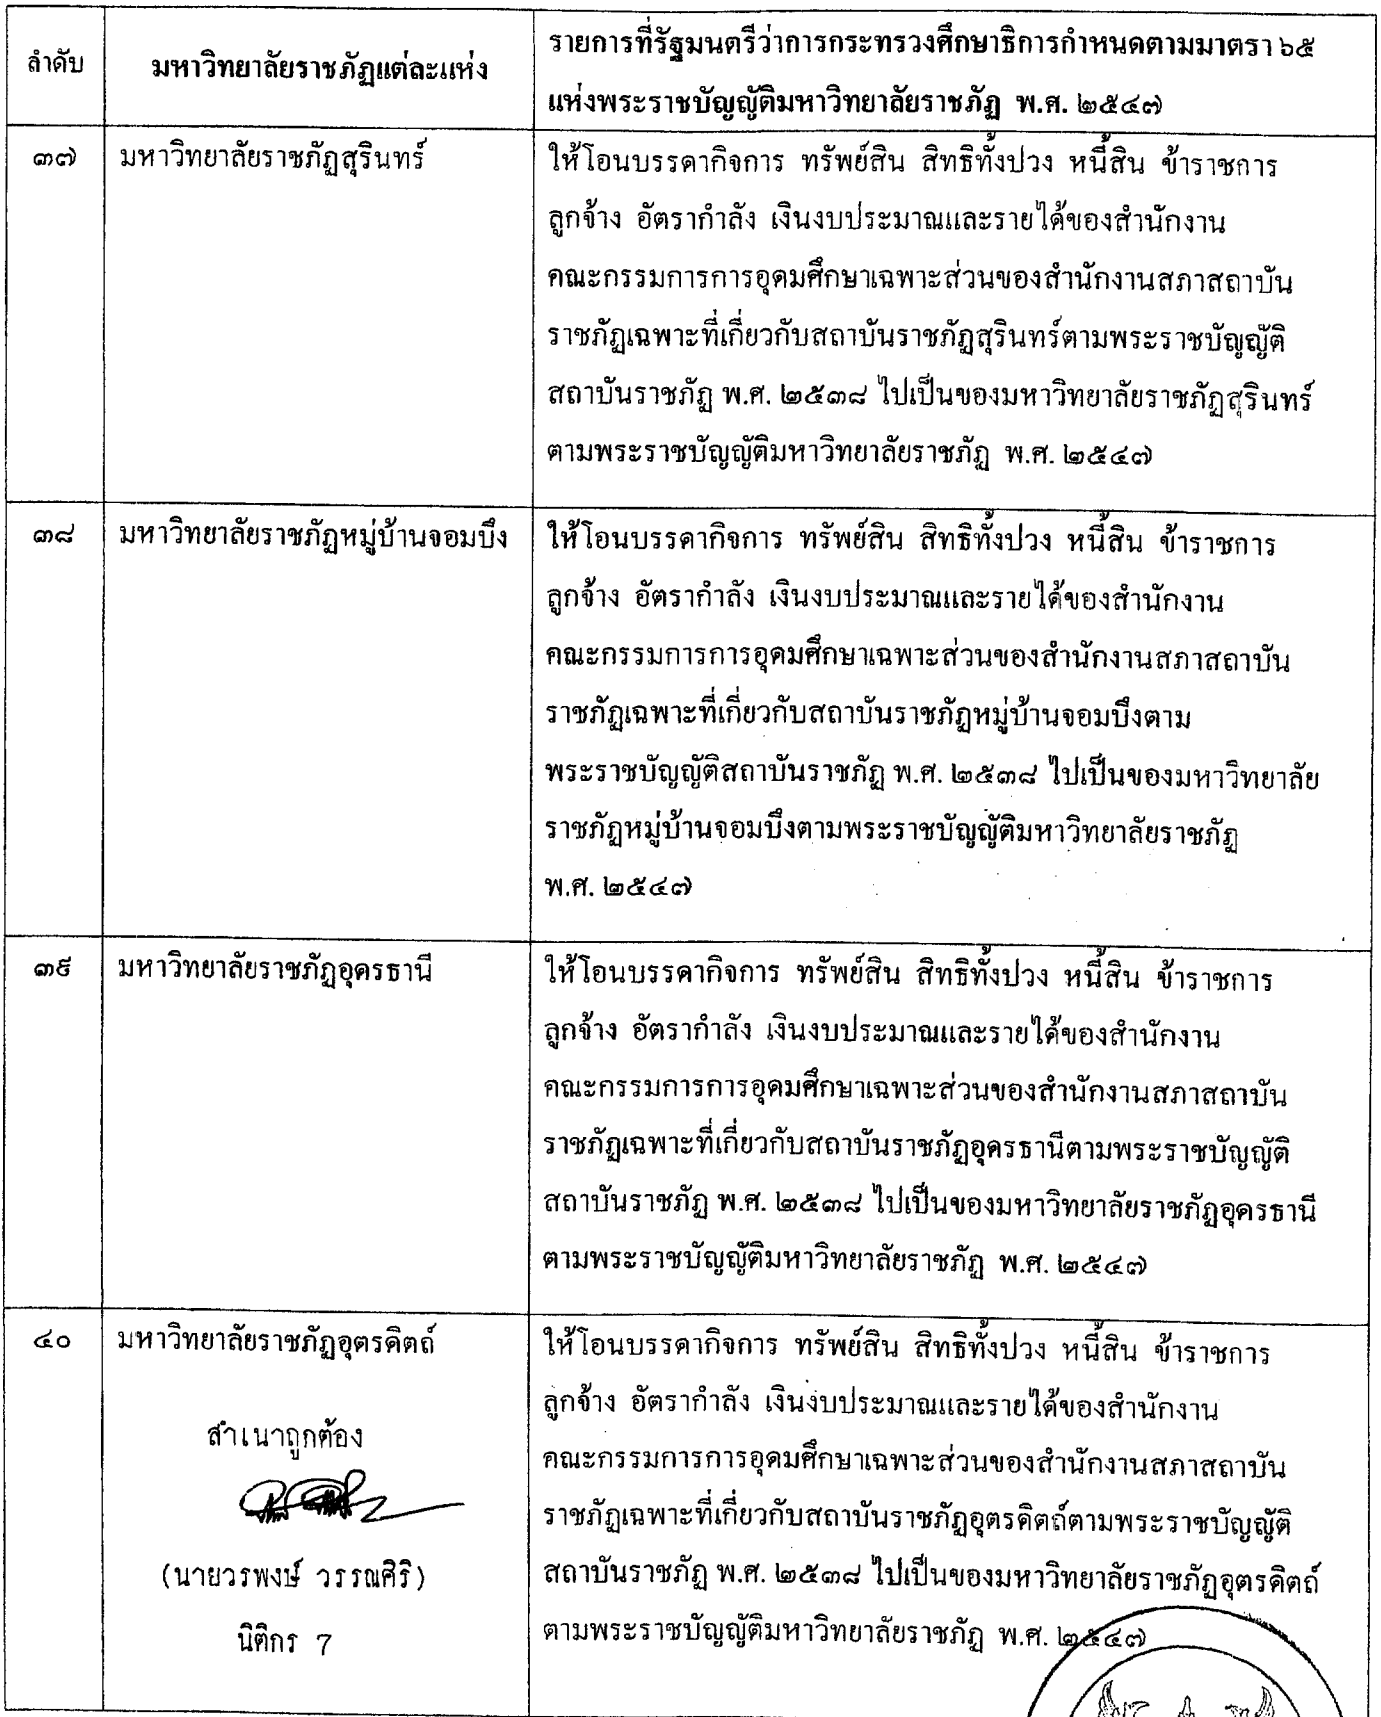 ลำดับ
มหาวิทยาลัยราชภัฏแต่ละแห่ง
รายการที่รัฐมนตรีว่าการกระทรวงศึกษาธิการกำหนดตามมาตรา ๖๕
แห่งพระราชบัญญัติมหาวิทยาลัยราชภัฏ พ.ศ. ๒๕๔๗
๓๗
มหาวิทยาลัยราชภัฏสุรินทร์
ให้โอนบรรดากิจการ ทรัพย์สิน สิทธิทั้งปวง หนี้สิน ข้าราชการ
ลูกจ้าง อัตรากำลัง เงินงบประมาณและรายได้ของสำนักงาน
คณะกรรมการการอุดมศึกษาเฉพาะส่วนของสำนักงานสภาสถาบัน
ราชภัฏเฉพาะที่เกี่ยวกับสถาบันราชภัฏสุรินทร์ตามพระราชบัญญัติ
สถาบันราชภัฏ พ.ศ. ๒๕๓๘ ไปเป็นของมหาวิทยาลัยราชภัฏสุรินทร์
ตามพระราชบัญญัติมหาวิทยาลัยราชภัฏ พ.ศ. ๒๕๔๗
๓๘
มหาวิทยาลัยราชภัฏหมู่บ้านจอมบึง
ให้โอนบรรดากิจการ ทรัพย์สิน สิทธิทั้งปวง หนี้สิน ข้าราชการ
ลูกจ้าง อัตรากำลัง เงินงบประมาณและรายได้ของสำนักงาน
คณะกรรมการการอุดมศึกษาเฉพาะส่วนของสำนักงานสภาสถาบัน
ราชภัฏเฉพาะที่เกี่ยวกับสถาบันราชภัฏหมู่บ้านจอมบึงตาม
พระราชบัญญัติสถาบันราชภัฏ พ.ศ. ๒๕๓๘ ไปเป็นของมหาวิทยาลัย
ราชภัฏหมู่บ้านจอมบึงตามพระราชบัญญัติมหาวิทยาลัยราชภัฏ
พ.ศ. ๒๕๔๗
๓๙
มหาวิทยาลัยราชภัฏอุดรธานี
ให้โอนบรรดากิจการ ทรัพย์สิน สิทธิทั้งปวง หนี้สิน ข้าราชการ
ลูกจ้าง อัตรากำลัง เงินงบประมาณและรายได้ของสำนักงาน
คณะกรรมการการอุดมศึกษาเฉพาะส่วนของสำนักงานสภาสถาบัน
ราชภัฏเฉพาะที่เกี่ยวกับสถาบันราชภัฏอุดรธานีตามพระราชบัญญัติ
สถาบันราชภัฏ พ.ศ. ๒๕๓๘ ไปเป็นของมหาวิทยาลัยราชภัฏอุดรธานี
ตามพระราชบัญญัติมหาวิทยาลัยราชภัฏ พ.ศ. ๒๕๔๗
๔๐
มหาวิทยาลัยราชภัฏอุตรดิตถ์
ให้โอนบรรดากิจการ ทรัพย์สิน สิทธิทั้งปวง หนี้สิน ข้าราชการ
ลูกจ้าง อัตรากำลัง เงินงบประมาณและรายได้ของสำนักงาน
คณะกรรมการการอุดมศึกษาเฉพาะส่วนของสำนักงานสภาสถาบัน
ราชภัฏเฉพาะที่เกี่ยวกับสถาบันราชภัฏอุตรดิตถ์ตามพระราชบัญญัติ
สถาบันราชภัฏ พ.ศ. ๒๕๓๘ ไปเป็นของมหาวิทยาลัยราชภัฏอุตรดิตถ์
ตามพระราชบัญญัติมหาวิทยาลัยราชภัฏ พ.ศ. ๒๕๔๗
สำเนาถูกต้อง
(นายวรพงษ์ วรรณศิริ)
นิติกร 7